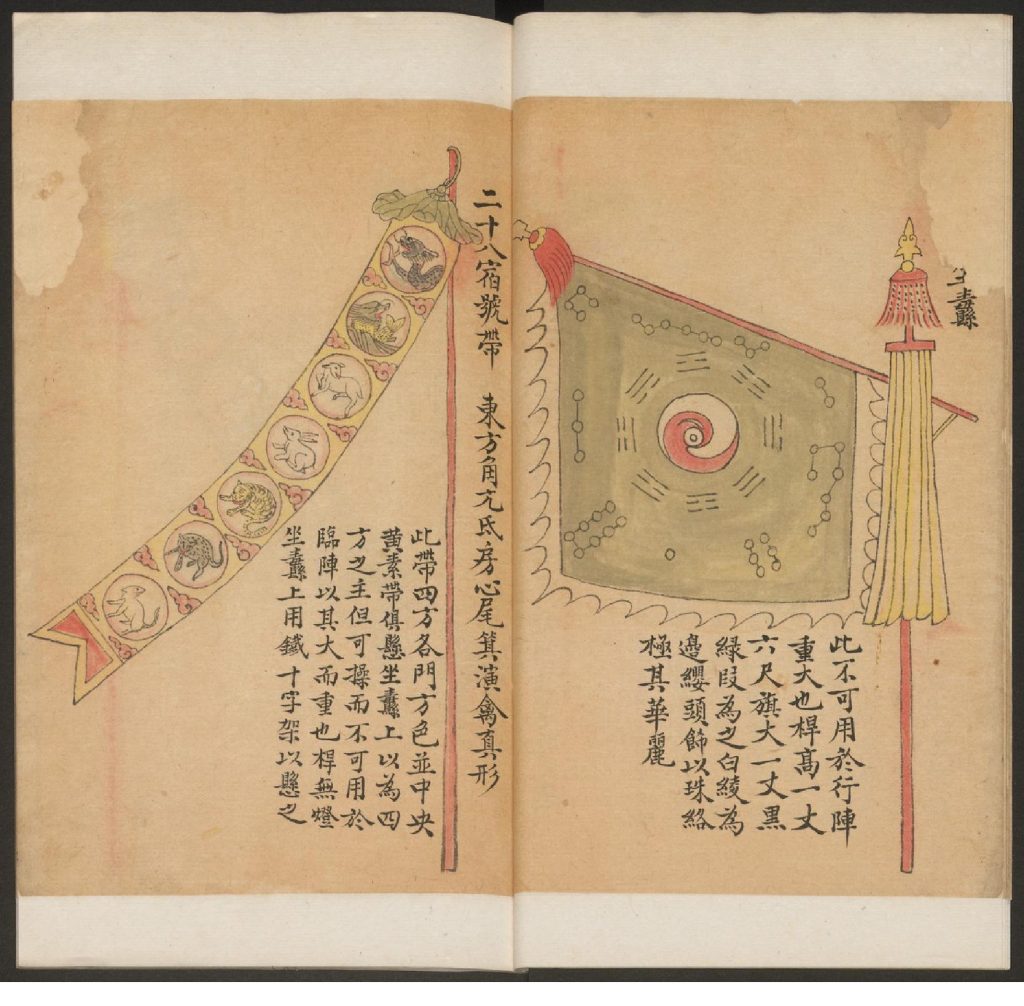 坐纛
此不可用於行陣
重大也桿髙一丈
六尺旗大一丈黒
緑段為之白綾為
邊纓頭飾以珠絡
極其華麗
二十八宿號帶　東方角亢氐房心尾箕演禽真形
此帶四方各門方色並中央
黄素帶俱懸坐纛上以為四
方之主但可操而不可用於
臨陣以其大而重也桿無燈
坐纛上用鐵十字架以懸之